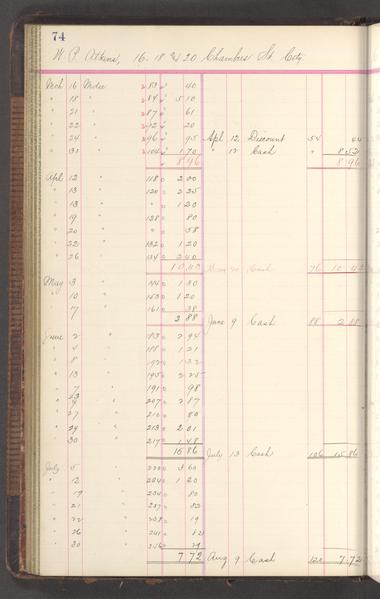 74
W. P. Atkins, 16-18 & 20 Chambers St. City.
Mch 16 Mdse 40
" 18 " 5 10
" 21 " 61
" 22 " 20
" 24 " 95 Apl 12 Discount 54 44
" 31 " 104 1 70 " 12 Cash " 8 52
8 96 8 96
Apl 12 " 118 2 00
" 13 " 120 2 25
" 18 " 1 20
" 19 " 128 80
" 20 " " 58
" 22 " 132 1 20
" 26 " 134 2 40
10 43 Cash 76 10 43
May 3 " 144 1 30
" 10 " 153 1 20
" 17 " 161 38
2 88
June 9 Cash 88 2 88
June 2 " 183 2 94
" 4 " 188 1 21
" 8 " 192
" 13 " 195 2 25
" 7 " 191 98
" 23 " 207 2 87
" 27 " 210 80
" 29 " 213 2 01
" 30 " 217 1 48
15 86 July 13 Cash 106 15 86
July 5 " 3 60
" 12 " 1 20
" 19 " 80
" 21 " 237
" 22 " 19
" 26 " 241
" 30 "
7 72 Aug 9 Cash 120 7 72